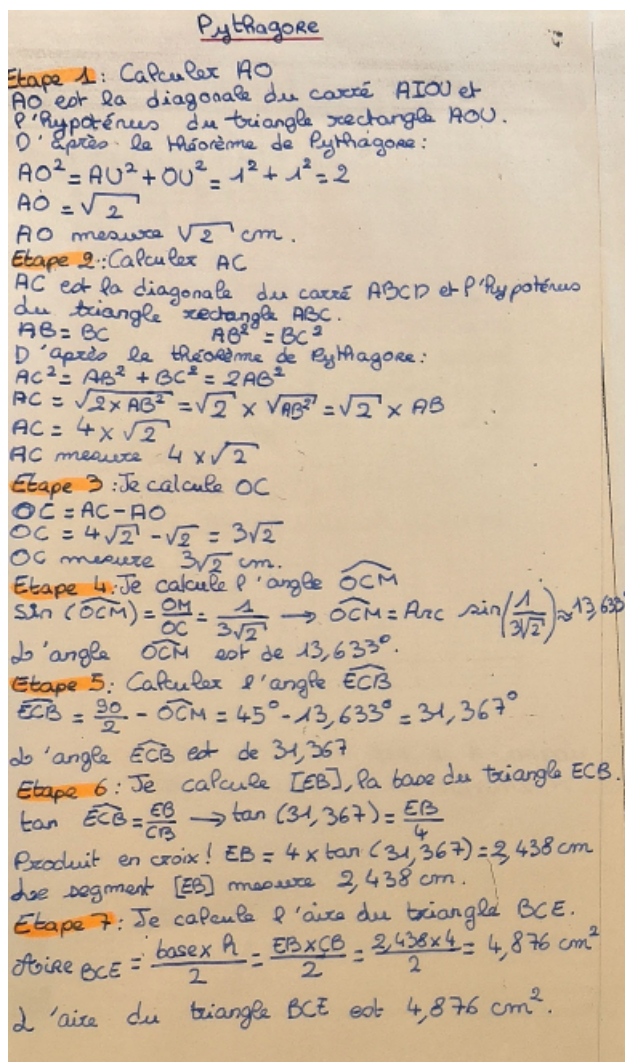 Pythagore
Etape 1: Calculer AO
AO est la diagonale du carré AIOU et
l'hypoténus du triangle rectangle AOU.
D'après le théorème de Pythagore:
AO² = AU² + OU² = 1² + 1² = 2
AO = √2
AO mesure √2 cm.
Etape 2: Calculer AC
AC est la diagonale du carré ABCD et l'hypoténus
du triangle rectangle ABC.
AB = BC AB² = BC²
D'après le théorème de Pythagore:
AC² = AB² + BC² = 2AB²
AC = √2 × AB² = √2 × √AB² = √2 × AB
AC = 4 × √2
AC mesure 4 × √2
Etape 3: Je calcule OC
OC = AC - AO
OC = 4√2 - √2 = 3√2
OC mesure 3√2 cm.
Etape 4: Je calcule l'angle OCM
Sin (OCM) = OM/OC = 1/3√2 → OCM = Arc sin(1/3√2) ≈ 13,633°
L'angle OCM est de 13,633°.
Etape 5: Calculer l'angle ECB
ECB = 90/2 - OCM = 45° - 13,633° = 31,367°
L'angle ECB est de 31,367
Etape 6: Je calcule [EB], la base du triangle ECB.
tan ECB = EB/CB → tan (31,367) = EB/4
Produit en croix! EB = 4 × tan (31,367) = 2,438 cm
Le segment [EB] mesure 2,438 cm.
Etape 7: Je calcule l'aire du triangle BCE.
Aire BCE = base × h/2 = EB × CB/2 = 2,438 × 4/2 = 4,876 cm²
L'aire du triangle BCE est 4,876 cm².